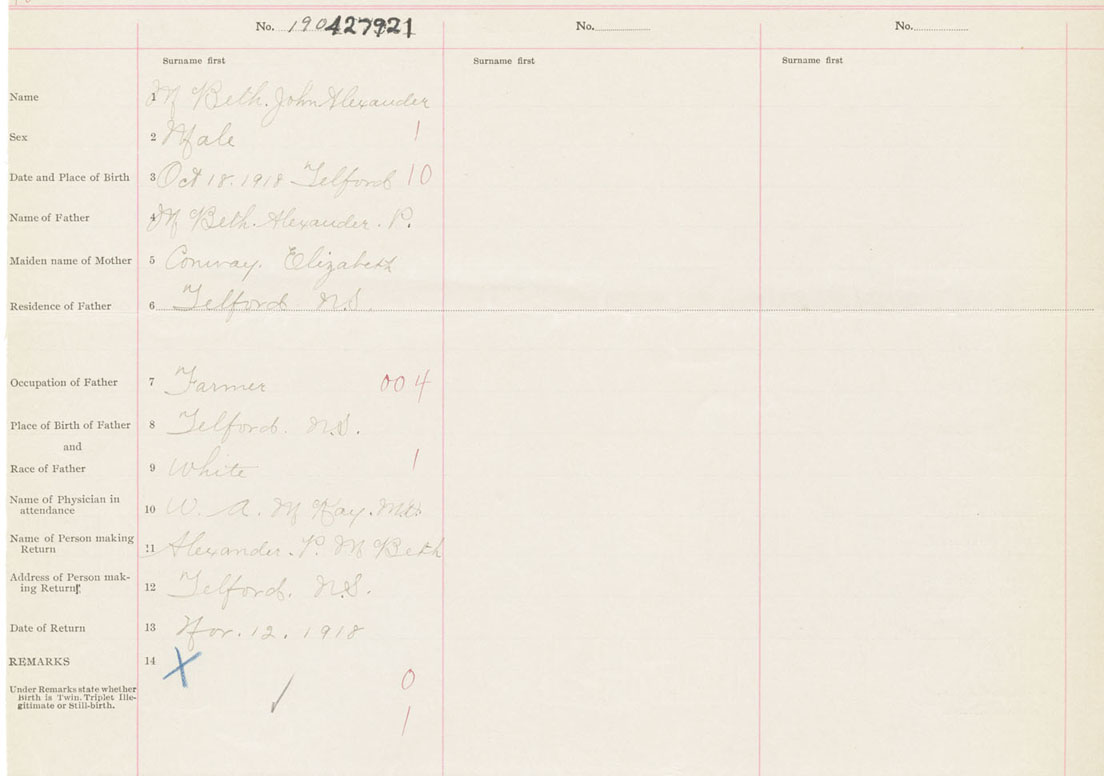 No. 190427921 No. No.
Surname first Surname first Surname first
Name 1 Mc Beth. John Alexander
Sex 2 Male 1
Date and Place of Birth 3 Oct 18. 1918 Telford 10
Name of Father 4 Mc Beth. Alexander. P.
Maiden name of Mother 5 Conway. Elizabeth
Residence of Father 6 Telford N.S.
Occupation of Father 7 Farmer 004
Place of Birth of Father 8 Telford. N.S.
and
Race of Father 9 White 1
Name of Physician in
attendance 10 W. A. Mc Kay. M.D.
Name of Person making
Return 11 Alexander. P. Mc Beth
Address of Person mak-
ing Return 12 Telford. N.S.
Date of Return 13 Nov. 12. 1918
REMARKS 14 X
Under Remarks state whether
Birth is Twin. Triplet Ille-
gitimate or Still-birth.
0
1